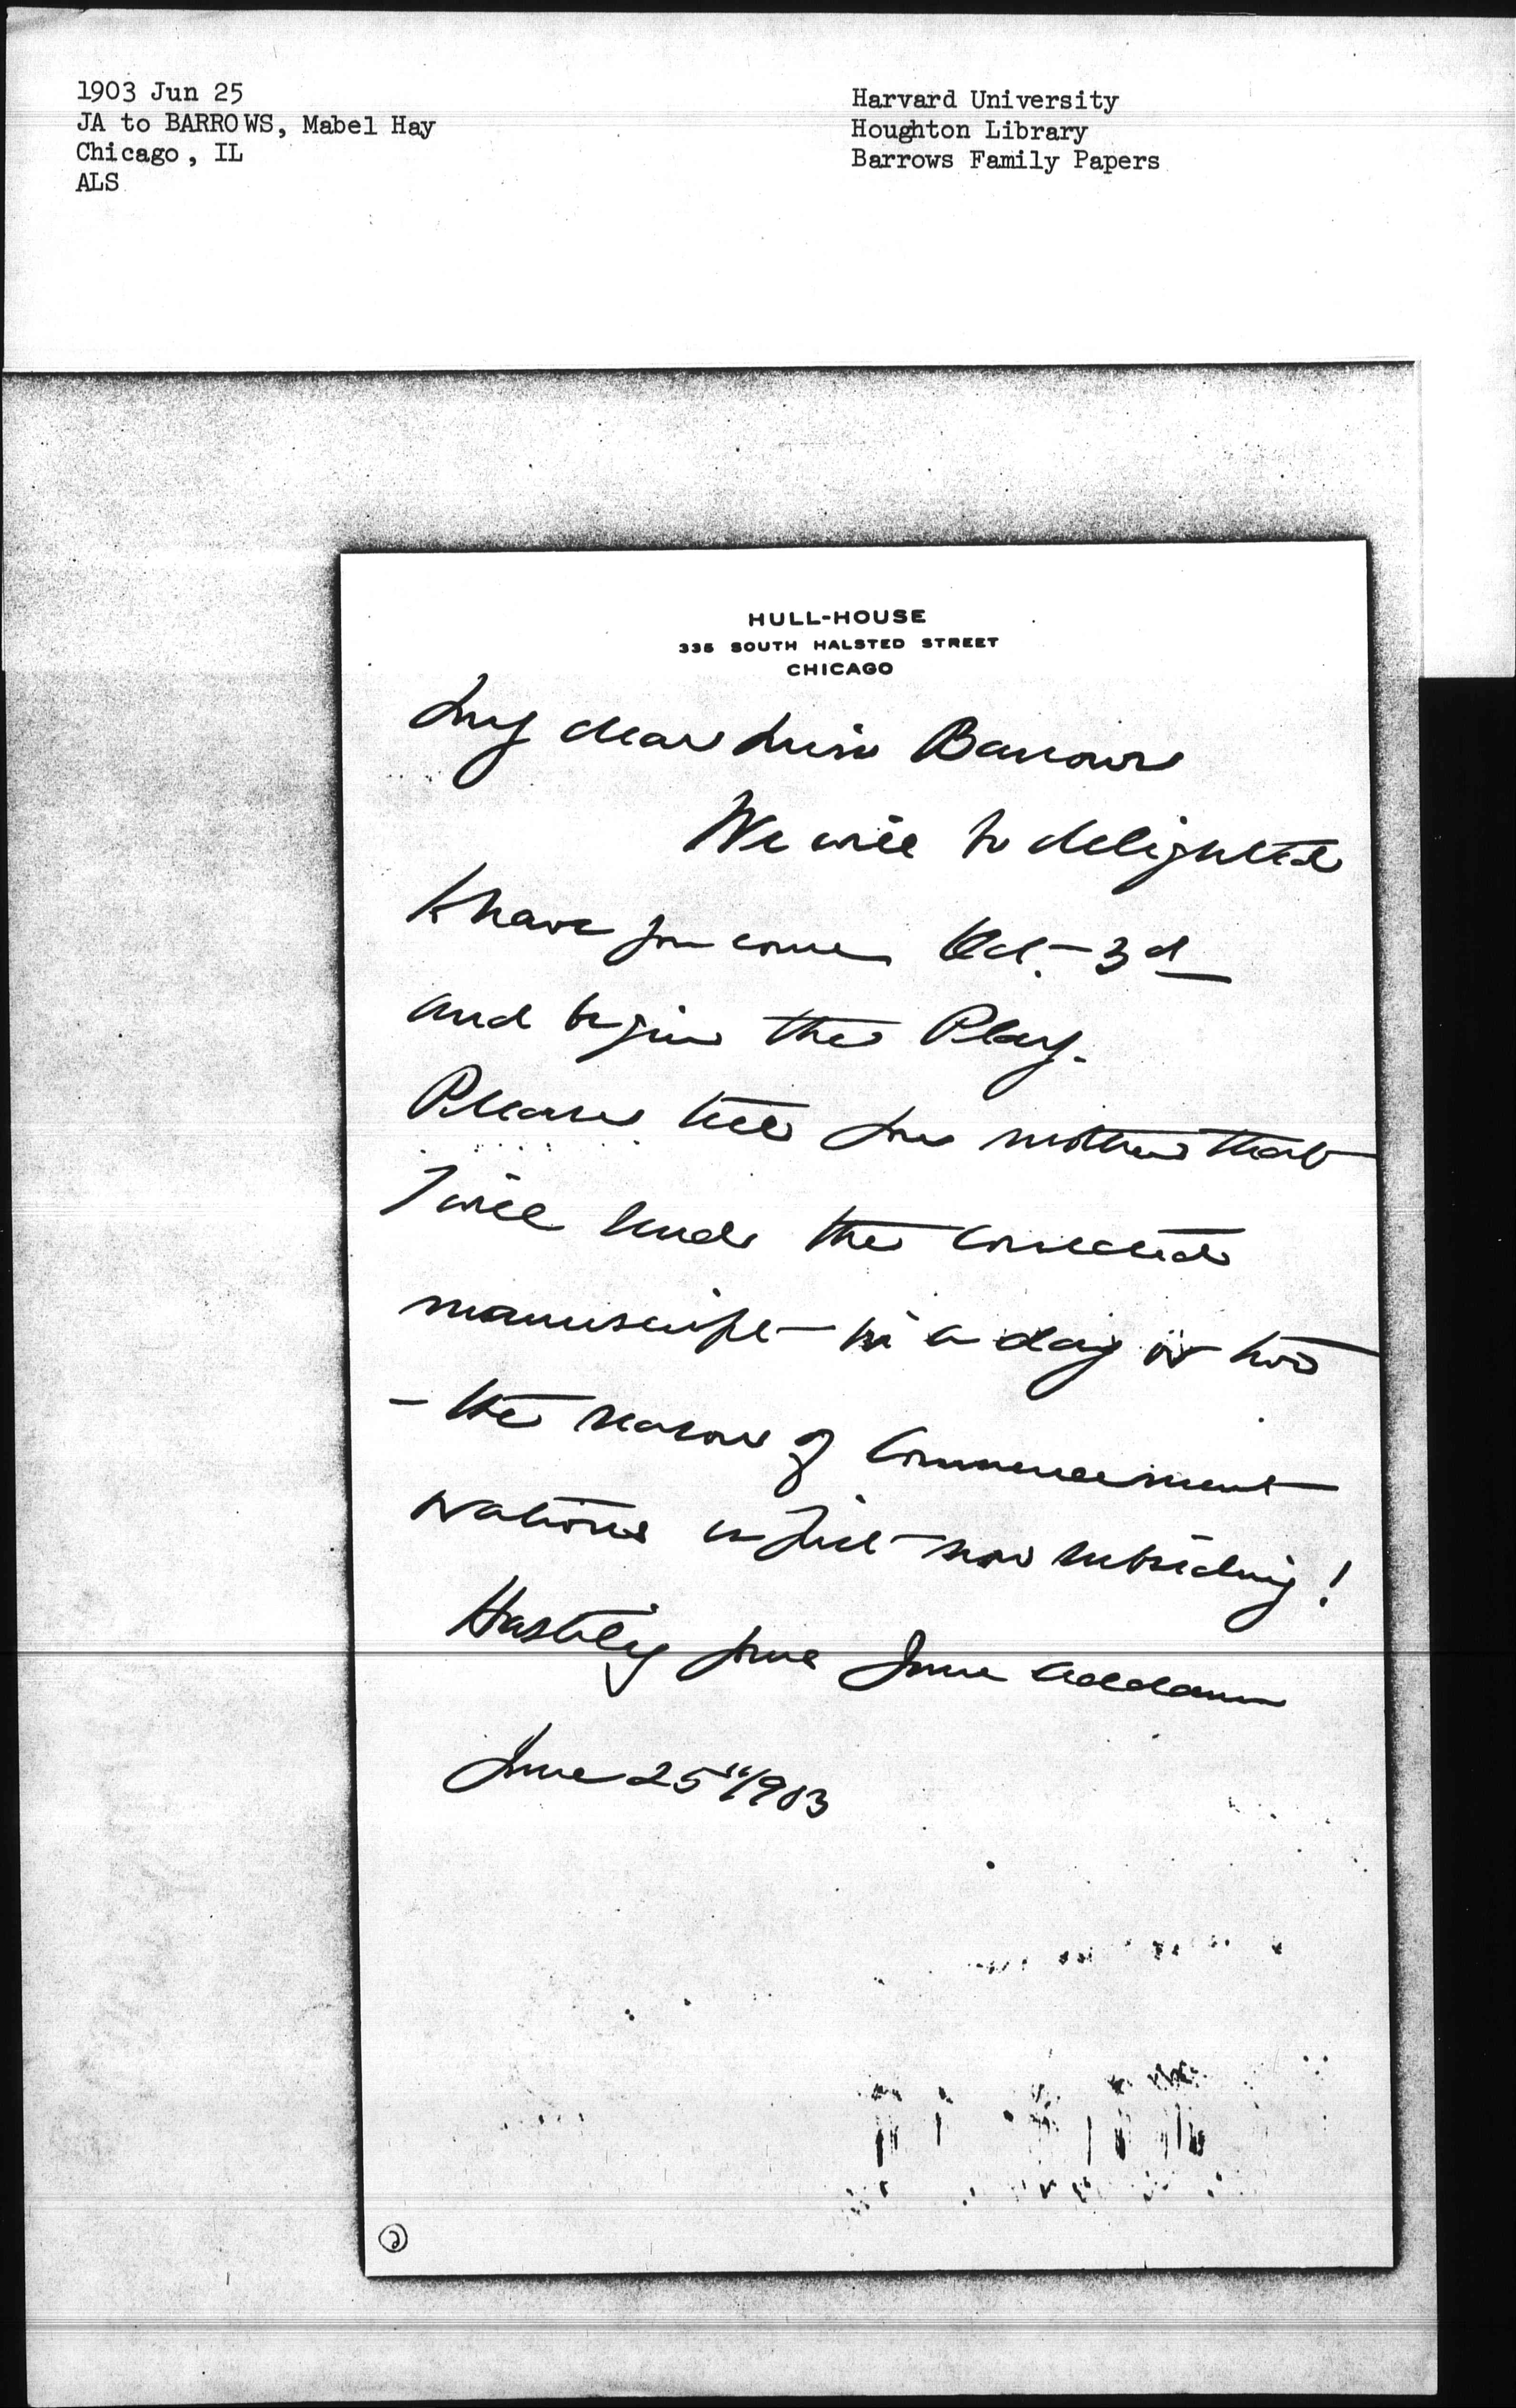 1903 Jun 25
JA to BARROWS, Mabel Hay
Chicago, IL
ALS
Harvard University
Houghton Library
Barrows Family Papers
HULL-HOUSE
335 SOUTH HALSTED STREET
CHICAGO
My dear Miss Barrows
We will be delighted
to have you come Oct. 3d
and begin the Play.
Please tell your mother that
I will send the corrected
manuscript in a day or two
- the season of Commencement
orations is just now subsiding!
Hastily yours Jane Addams
June 25" 1903
2